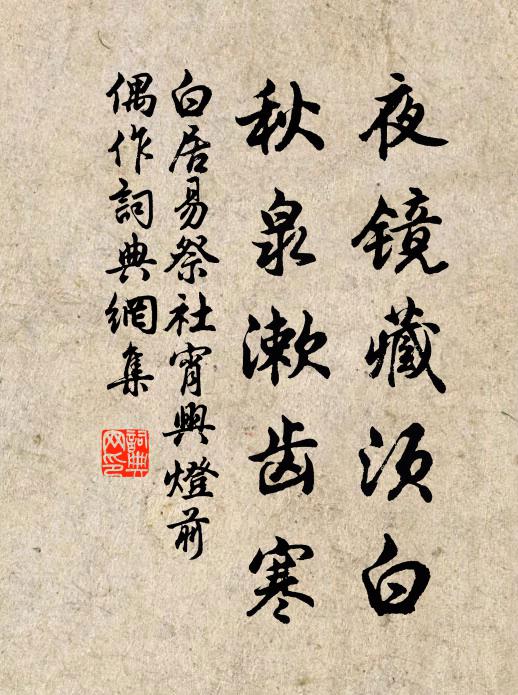 夜镜藏须白
秋泉漱齿寒
白居易祭社宵興燈前
偶作詞典網集
詞典
网印